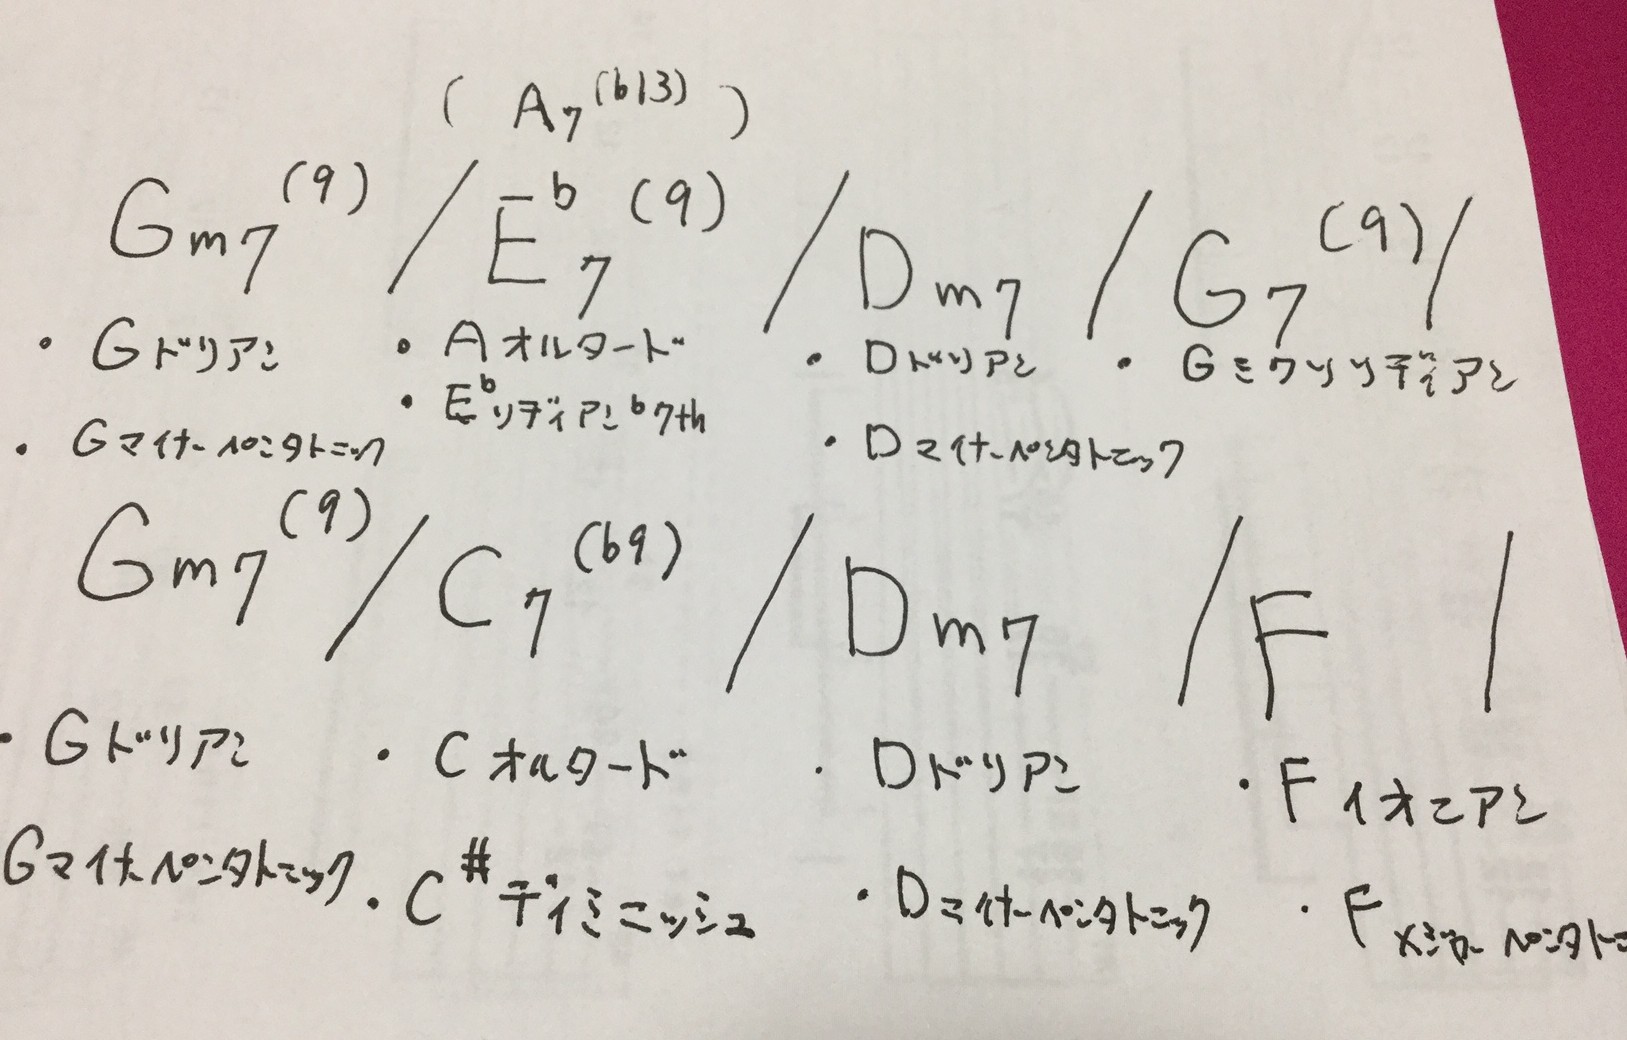 ( A7(b13) )
Gm7(9) / Eb7(9) / Dm7 / G7(9) /
・Gドリアン ・Aオルタード ・Dドリアン ・Gミクソリディアン
・Ebリディアンb7th
・Gマイナーペンタトニック ・Dマイナーペンタトニック
Gm7(9) / C7(b9) / Dm7 / F /
・Gドリアン ・Cオルタード ・Dドリアン ・Fイオニアン
Gマイナーペンタトニック ・C#ディミニッシュ ・Dマイナーペンタトニック ・Fメジャーペンタトニ